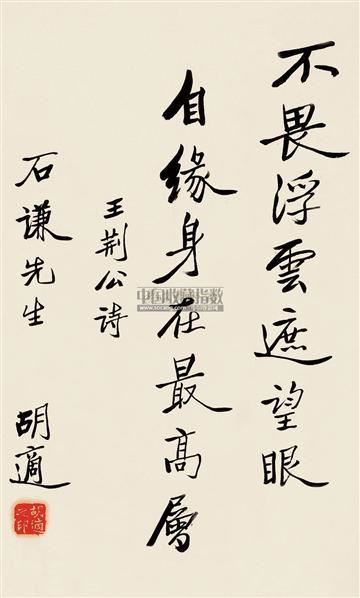 不畏浮雲遮望眼
自缘身在最高層
王荆公诗
石谦先生
胡適
胡適之印
中国收藏指数